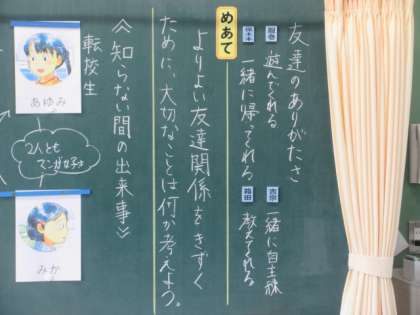 友達のありがたさ
遊んでくれる
一緒に帰ってくれる
吉宗
一緒に自主練
箱田
教えてくれる
めあて
よりよい友達関係をきずく
ために、大切なことは何か考えよう。
≪知らない間の出来事≫
転校生
あゆみ
2人とも
マンガ好き
みか